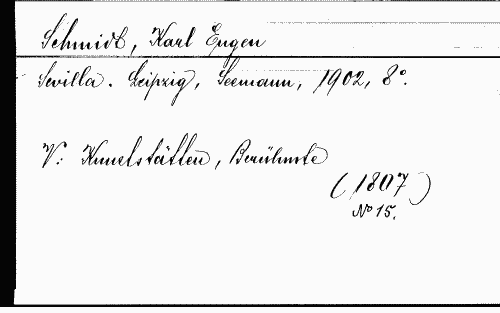 Schmidt, Karl Eugen
Sevilla. Leipzig, Seemann, 1902, 8°.
V: Kunststätten, Berühmte
(1807)
No 15.